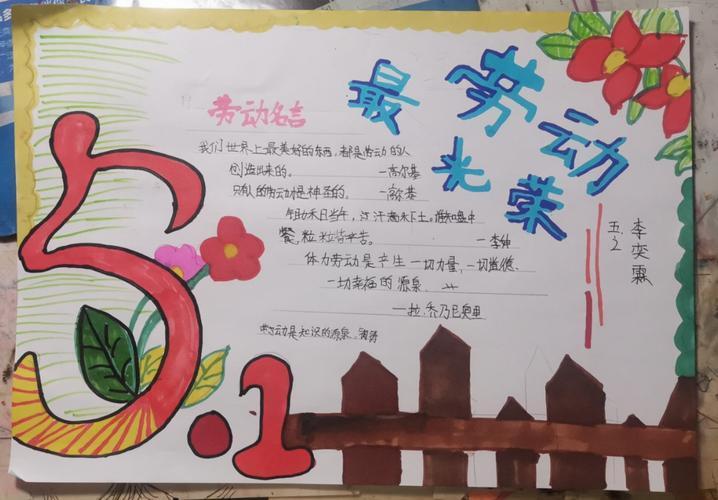 最劳动
光荣
劳动名言
我们世界上最美好的东西,都是劳动的人
创造出来的。 —高尔基
只有人的劳动是神圣的。 —高尔基
锄禾日当午,汗滴禾下土。谁知盘中
餐,粒粒皆辛苦。 —李绅
体力劳动是产生一切力量,一切道德、
一切幸福的源泉。
—拉·乔乃尼奥里
劳动是知识的源泉。
五.2
李奕霖
5.1